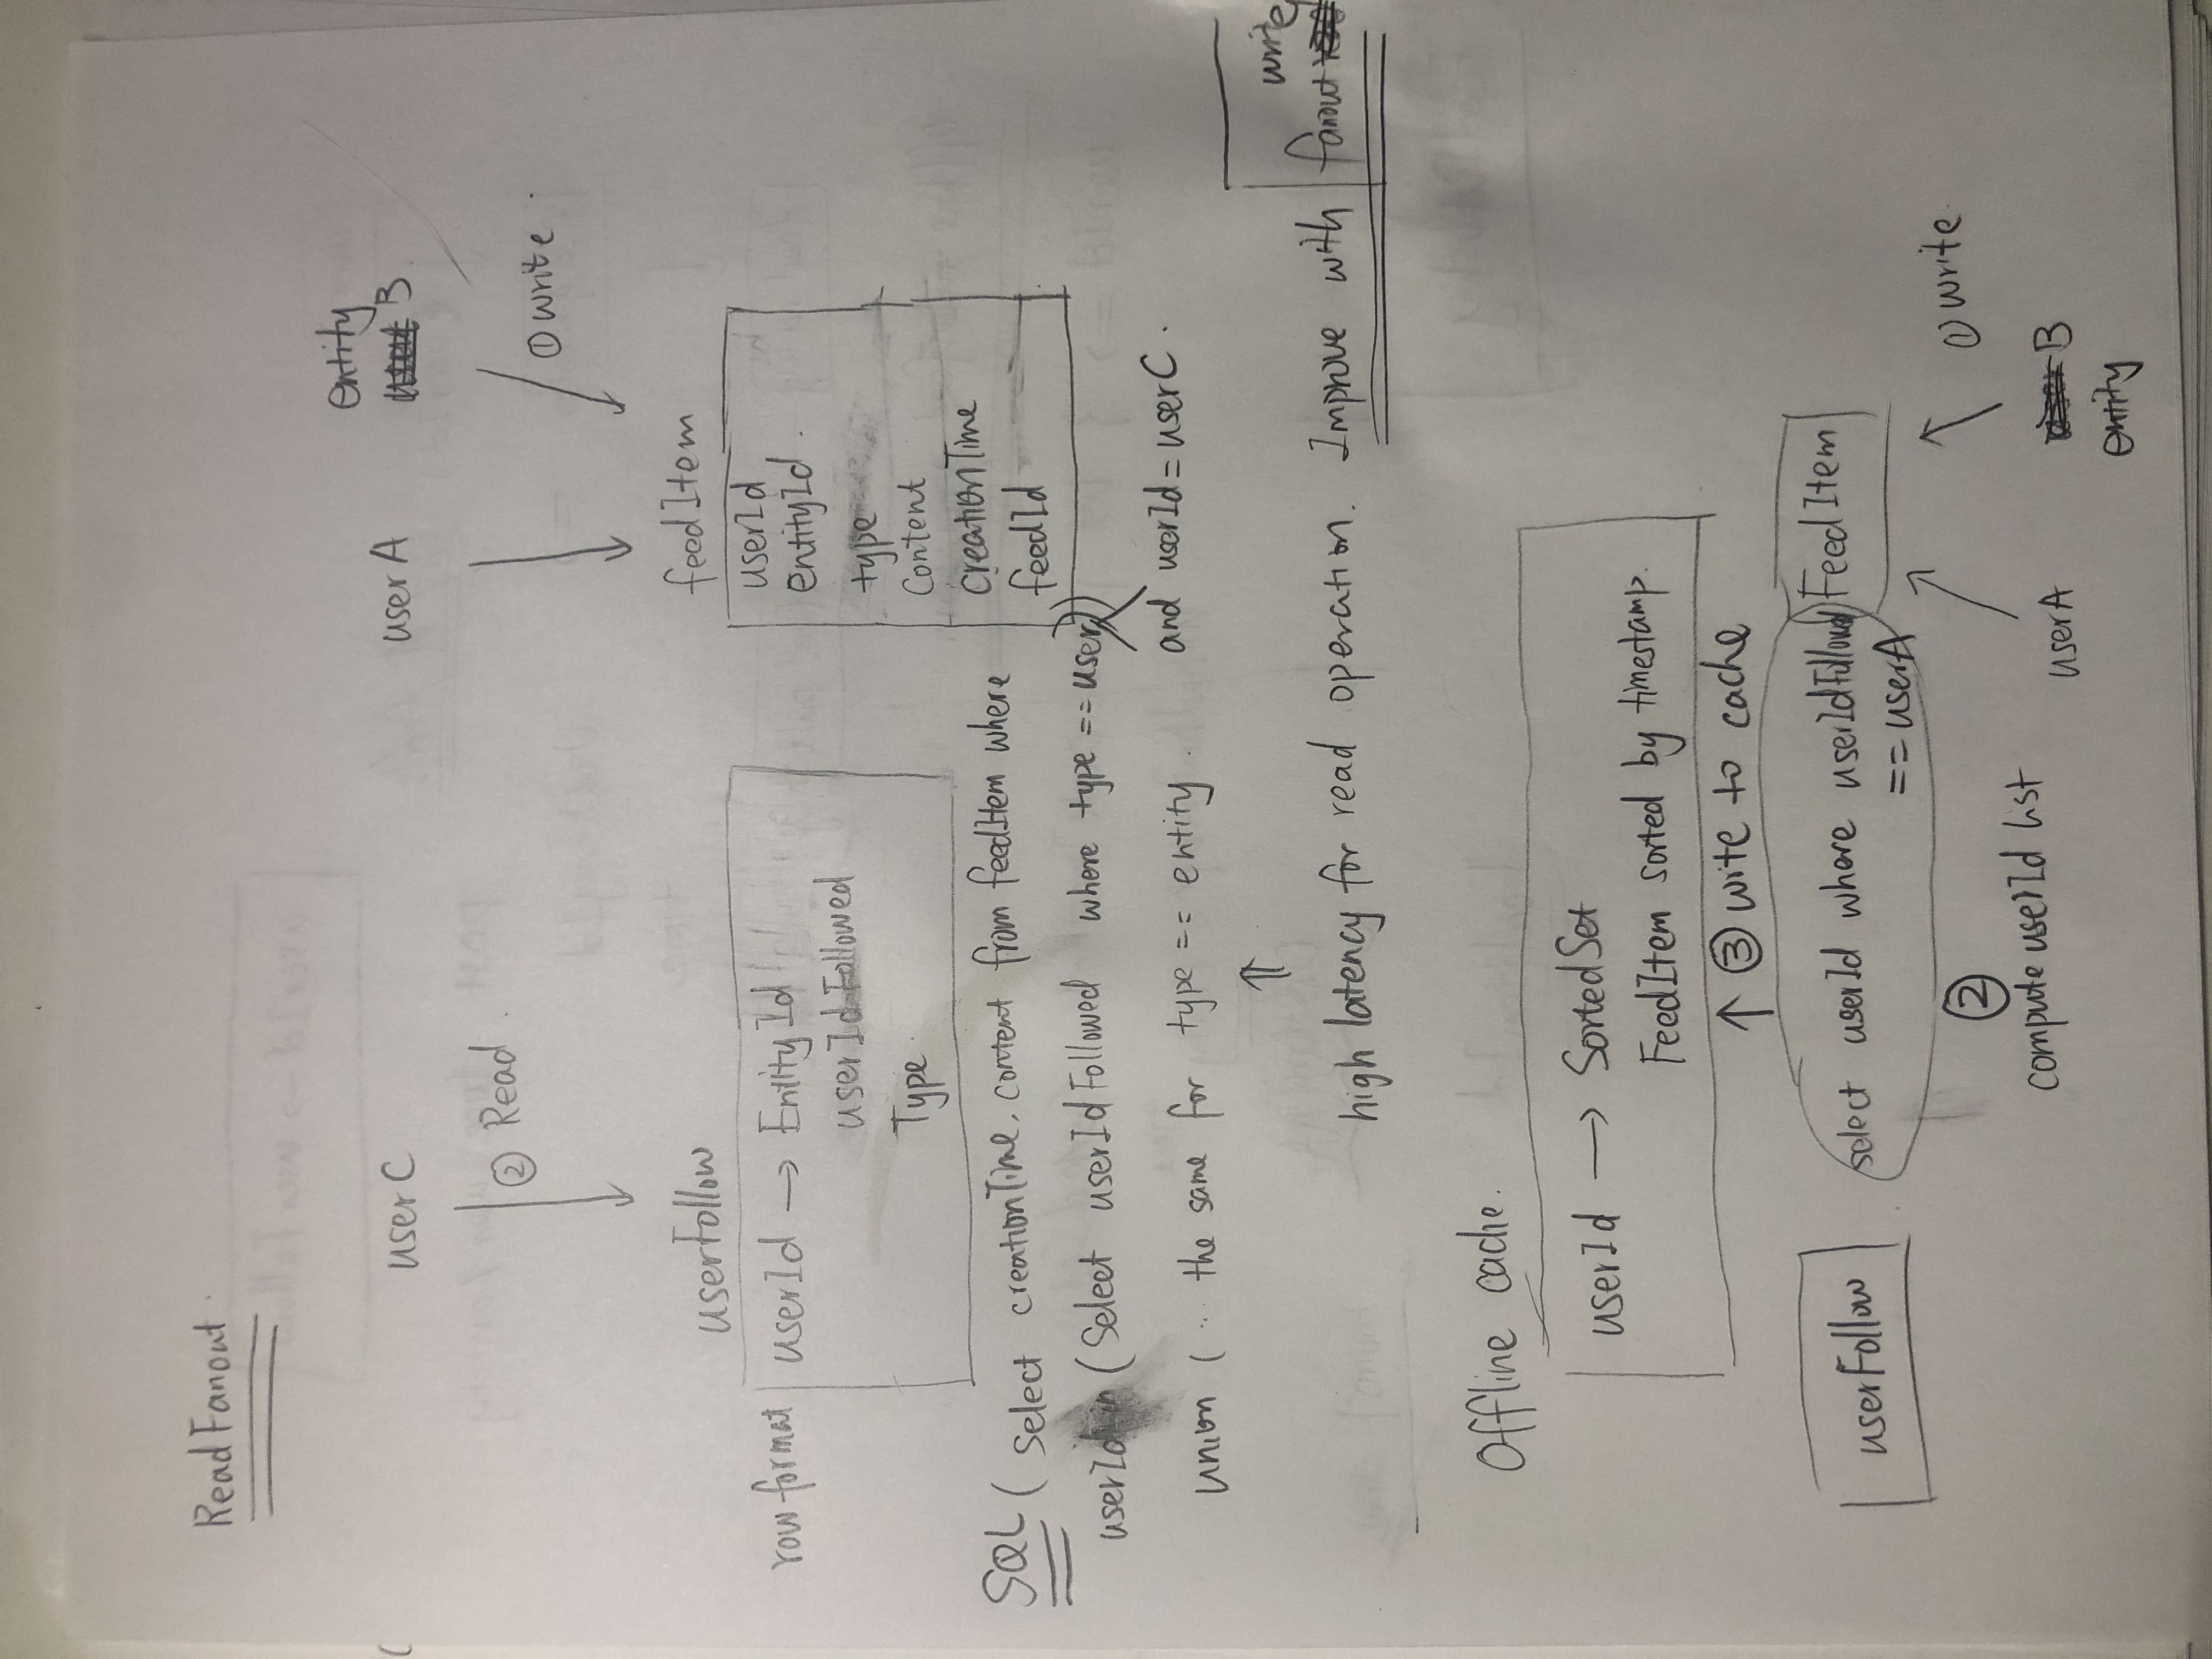 Read Fanout
entity
user C
user A
B
② Read
① write
userFollow
feedItem
row format
userId → EntityId
userIdFollowed
Type
userId
entityId
type
Content
creationTime
feedId
SQL ( Select creationTime, content from feedItem where
userId in (Select userIdFollowed where type == user))
and userId = userC.
union ( .. the same for type == entity.
⇑
high latency for read operation. Improve with write
fanout
Offline cache.
userId → SortedSet
FeedItem sorted by timestamp.
↑ ③ write to cache
userFollow
select userId where userIdFollowed
== userA
FeedItem
②
compute userId list
① write
userA
B
entity